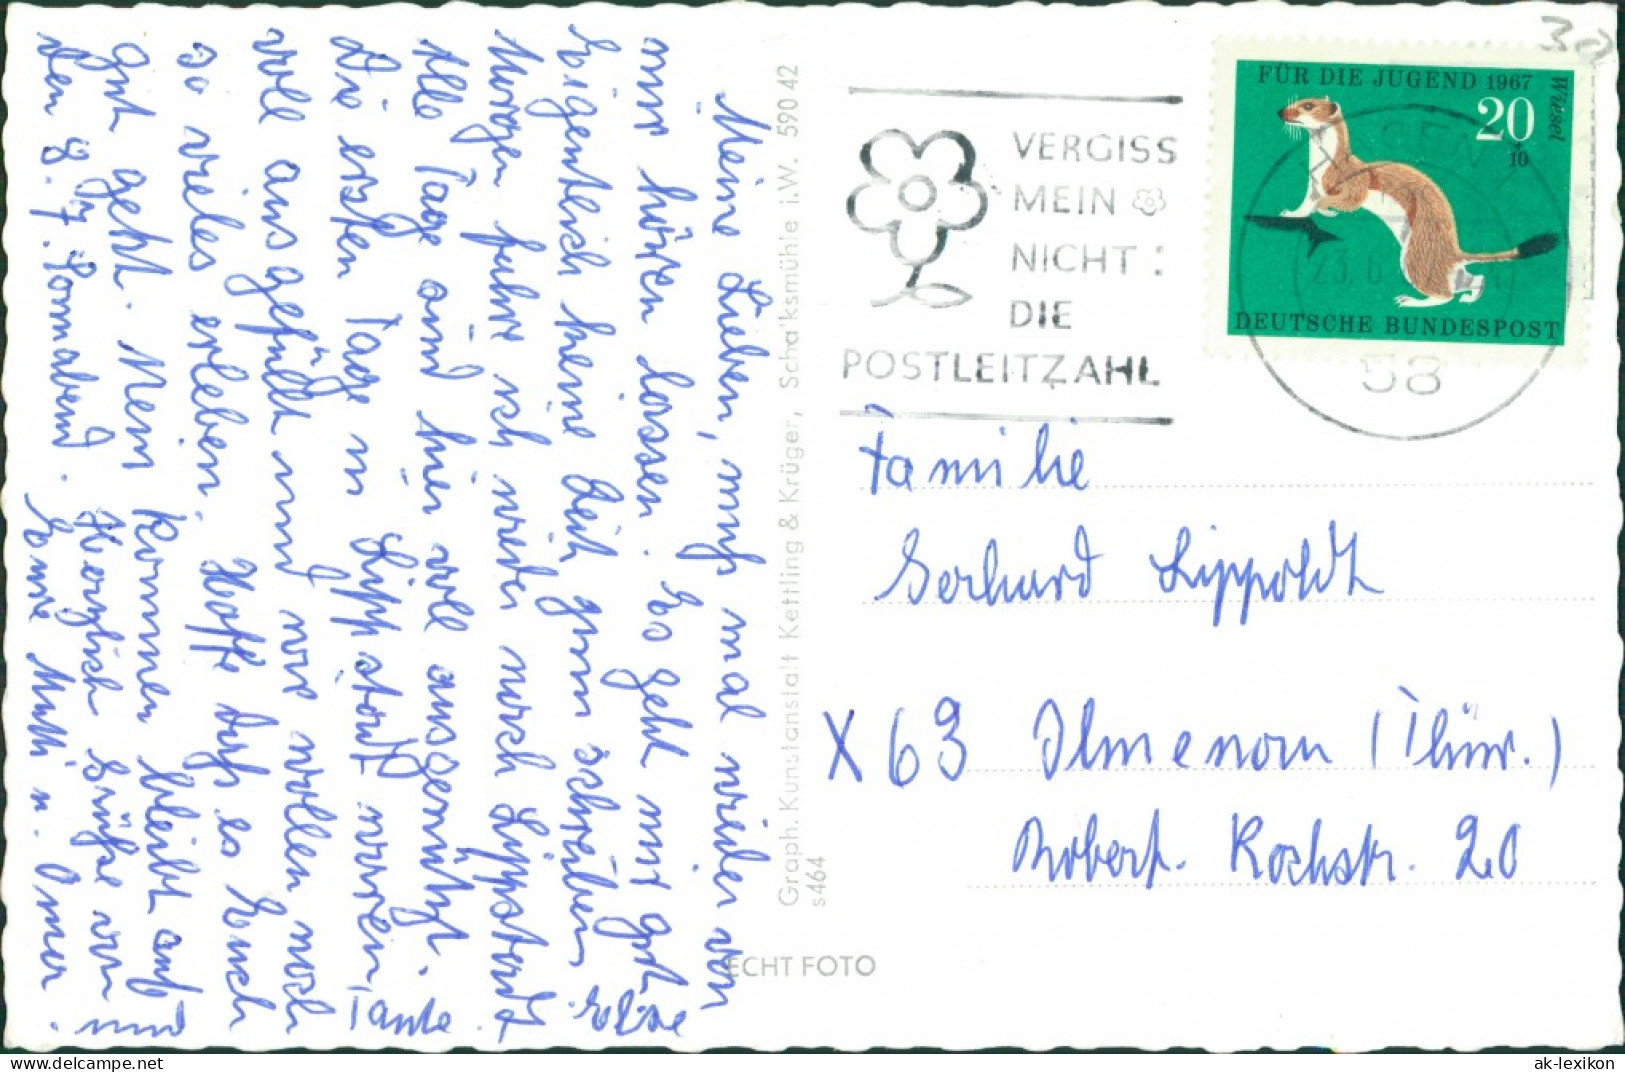 Meine Lieben, muß mal wieder von
mir hören lassen. Es geht mir gut.
Eigentlich keine Zeit zum schreiben.
Morgen fahre ich wieder nach Lippstadt.
Alle Tage sind hier voll ausgenützt.
Die ersten Tage in Lippstadt waren Tante Else
voll ausgefüllt und wir wollen noch
so vieles erleben. Hoffe daß es Euch
gut geht. Mein Kommen bleibt auf
den 8.7. Sonnabend.
Herzlich Grüße von
Eure Mutti u. Omer.
Graph. Kunstanstalt Kettling & Krüger, Schalksmühle i.W. 590 42
s464
ECHT FOTO
VERGISS
MEIN
NICHT:
DIE
POSTLEITZAHL
FÜR DIE JUGEND 1967
Wiesel
20
+10
DEUTSCHE BUNDESPOST
58
30
Familie
Gerhard Lippoldt
X 63 Ilmenau (Thür.)
Robert. Kochstr. 20
www.delcampe.net
ak-lexikon